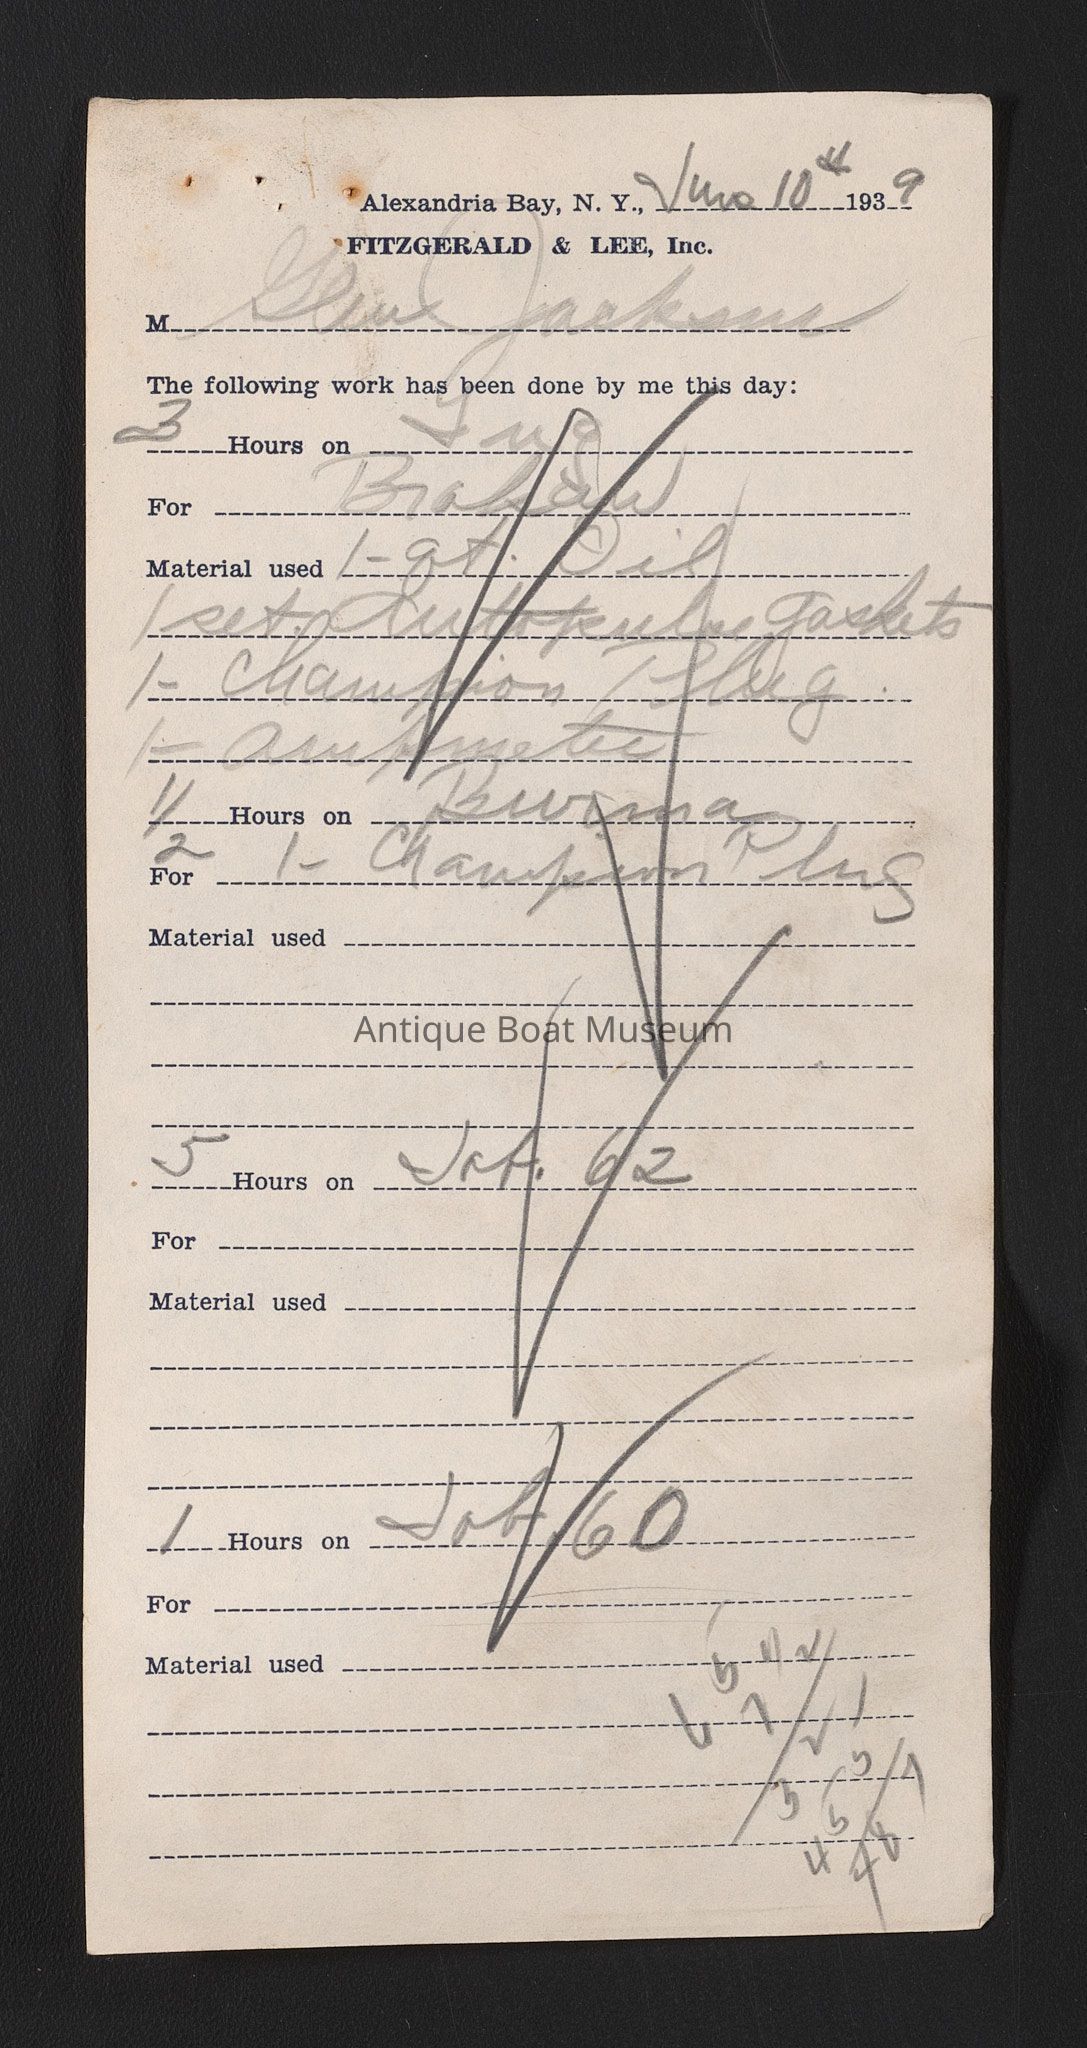 Alexandria Bay, N. Y., June 10th 1939
FITZGERALD & LEE, Inc.
M Jackson
The following work has been done by me this day:
3 Hours on Tug
For
Material used 1- qt. Oil
1 set. Autopulse Gaskets
1- Champion Plug.
1- ampmeter
1/2 Hours on
For 1- Champion Plug
Material used
Antique Boat Museum
5 Hours on Job. 62
For
Material used
1 Hours on Job. 60
For
Material used